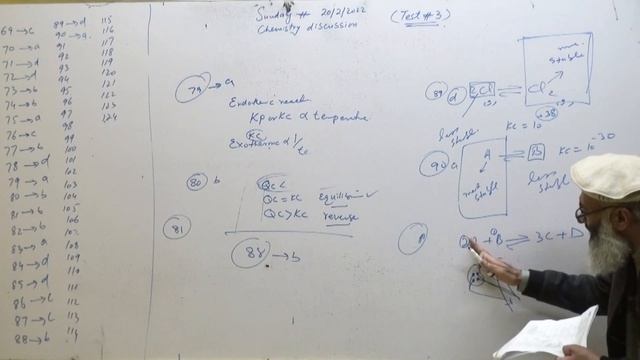 Sunday # 20/2/2022 (Test # 3)
Chemistry discussion
69→c
70→a
71→d
72→d
73→b
74→b
75→a
76→c
77→b
78→d
79→a
80→b
81→b
82→b
83→a
84→d
85→d
86→c
87→c
88→b
89→d
90→a
91
92
93
94
95
96
97
98
99
100
101
102
103
104
105
106
107
108
109
110
111
112
113
114
115
116
117
118
119
120
121
122
123
124
79→a
Endothermic
Kp or Kc α temperature
Kc
Exothermic α 1/
80 b
Qc <
Qc = Kc Equilibrium
Qc > Kc reverse
81
88→b
89 d 2Cl ⇌ Cl2
more stable
Kc = 10
less stable
90 a A ⇌ B Kc = 10-30
less stable
+ B ⇌ 3C + D